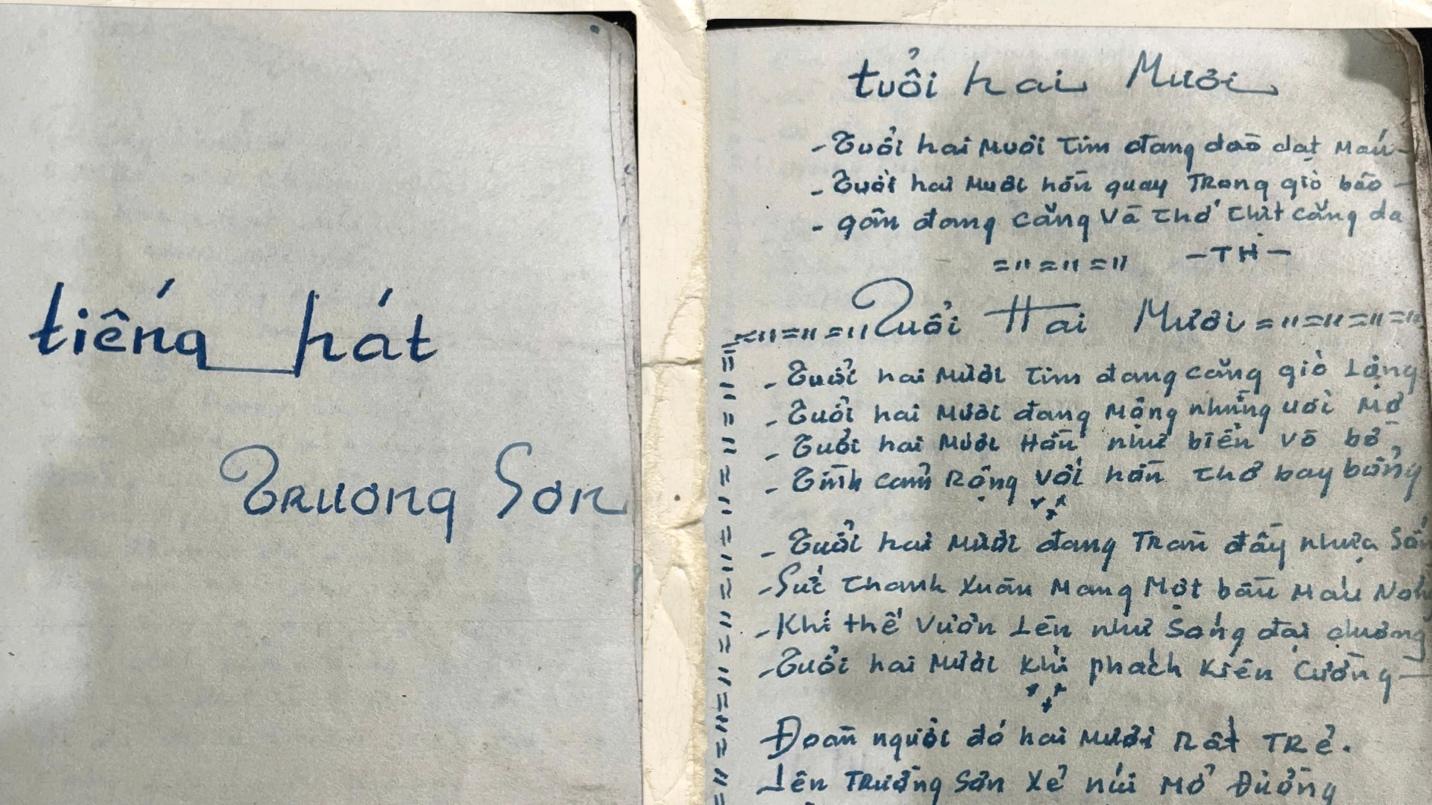 tiếng hát
Trường Sơn
tuổi hai Mươi
- Tuổi hai Mươi Tim đang dào dạt Máu -
- Tuổi hai Mươi hồn quay Trong gió bão -
- gân đang căng và thớ thịt căng da
="="="
- TH -
="="="Tuổi Hai Mươi="="="="
- Tuổi hai Mươi Tim đang căng gió Lộng
- Tuổi hai Mươi đang Mộng những ươi Mơ
- Tuổi hai Mươi Hồn như biển vỗ bờ
- Tình cảm Rộng với hồn thơ bay bổng
- Tuổi hai Mươi đang Tràn đầy nhựa
- Sức thanh Xuân Mang Một bầu Máu
- Khí thế Vươn Lên như Sóng đại dương
- Tuổi hai Mươi Khí phách Kiên Cường -
- Đoàn người đó hai Mươi Rất TRẻ.
- Lên TRường Sơn Xẻ núi Mở Đường